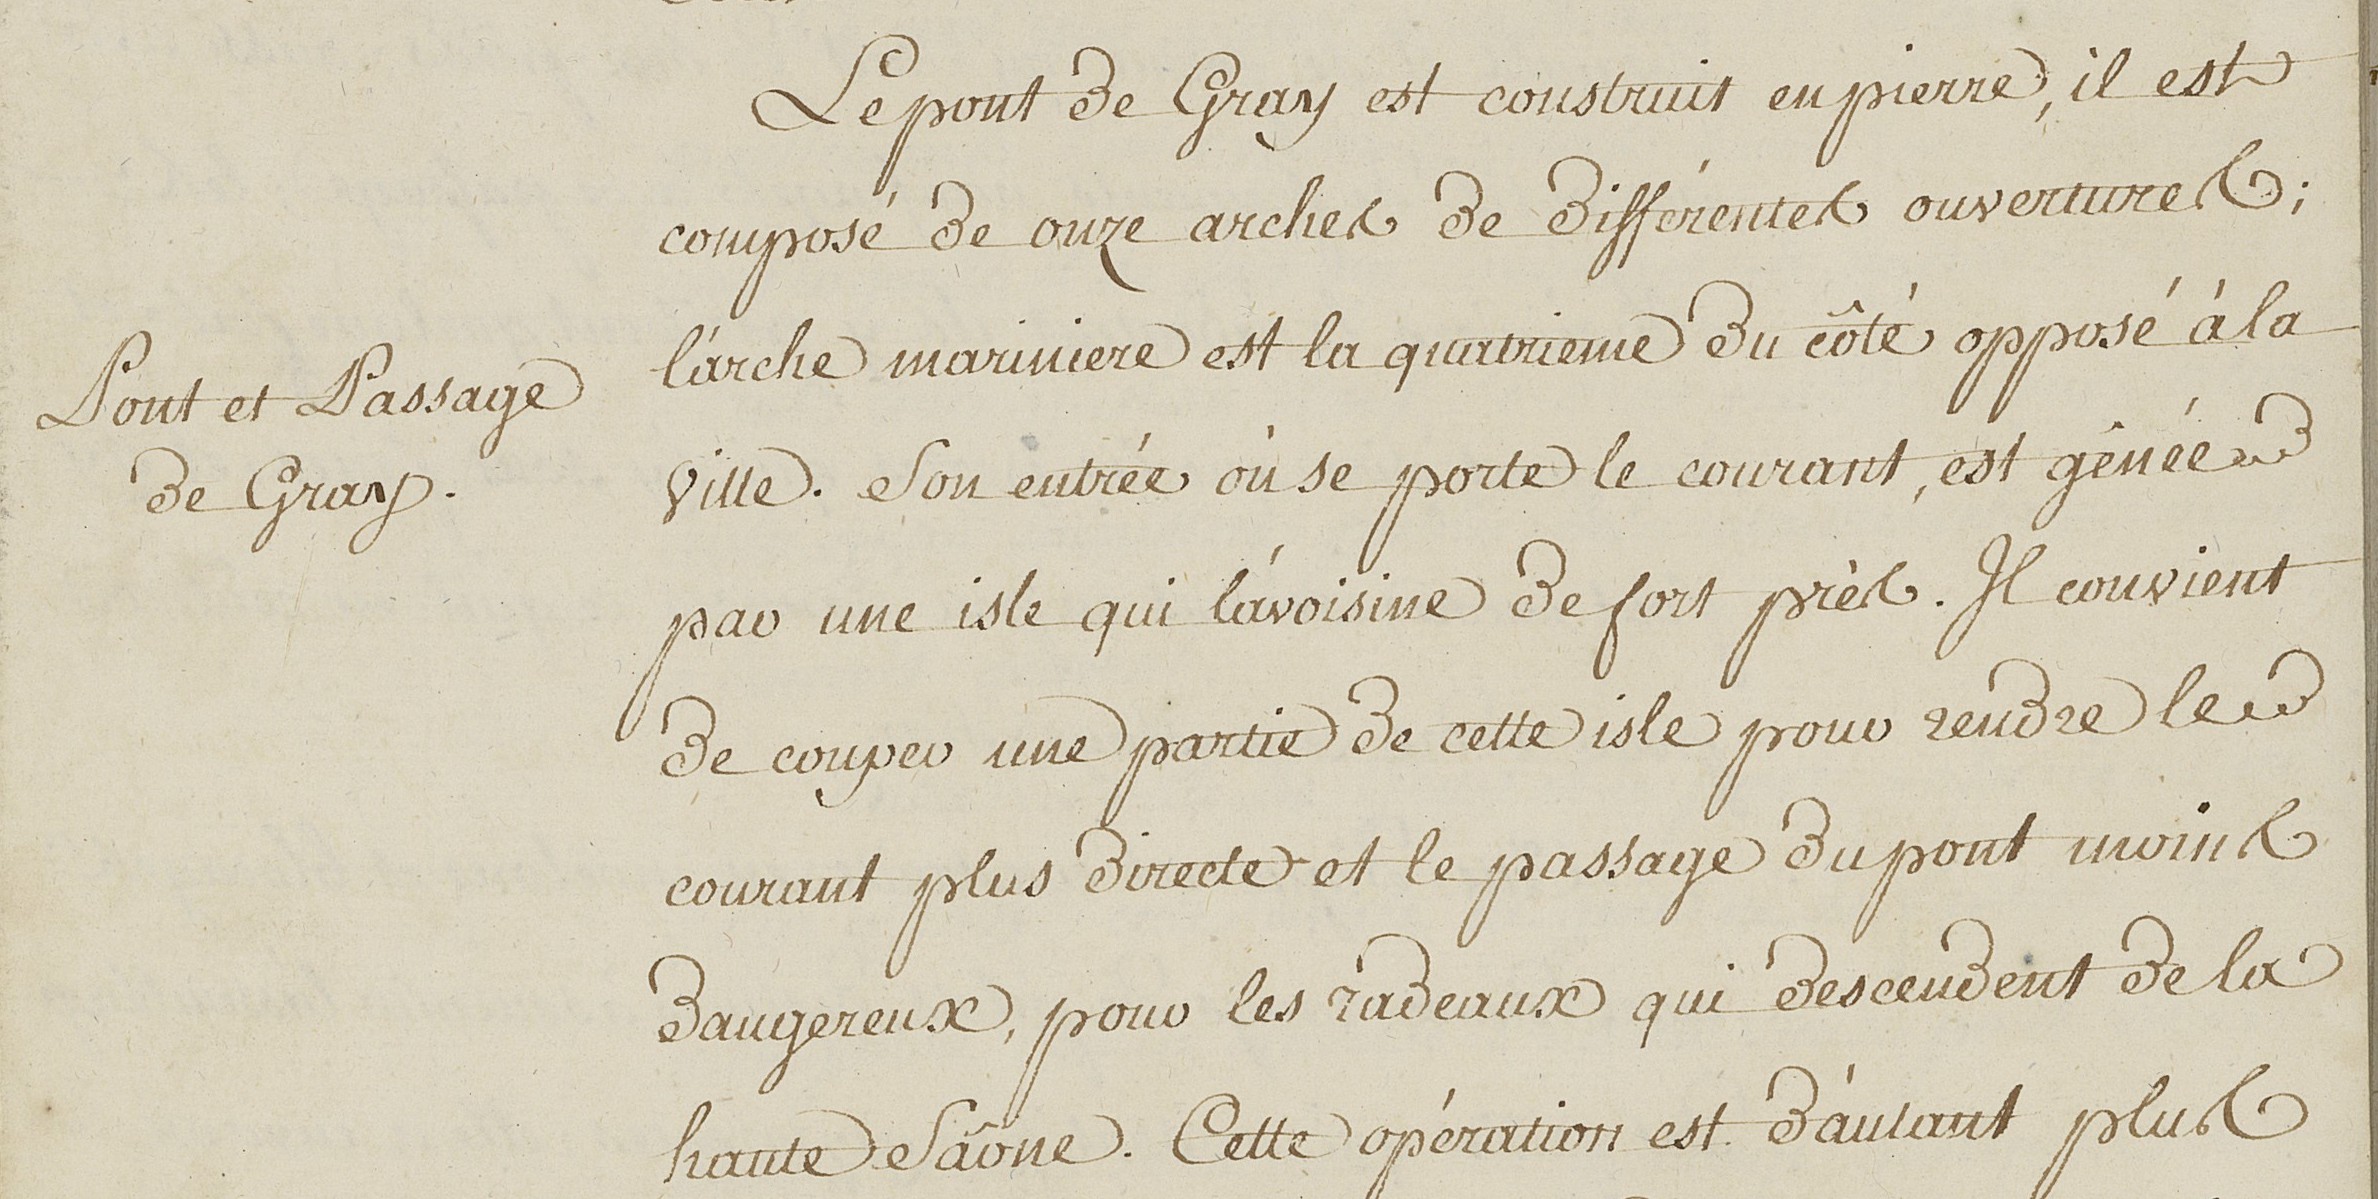 Pont et Passage
de Gray.
Le pont de Gray est construit en pierre, il est
composé de onze arches de différentes ouvertures;
l'arche mariniere est la quatrieme du côté opposé à la
ville. Son entrée où se porte le courant, est gênée
par une isle qui l'avoisine de fort près. Il convient
de couper une partie de cette isle pour rendre le
courant plus directe et le passage du pont moins
dangereux, pour les radeaux qui descendent de la
haute Saône. Cette opération est d'autant plus